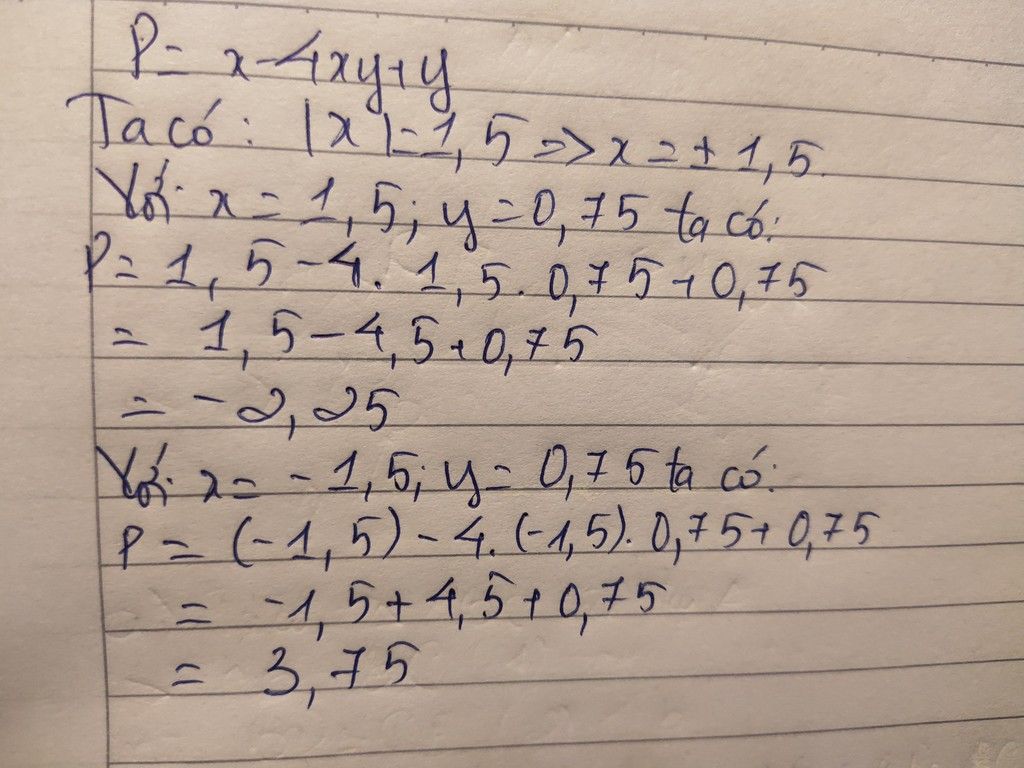 P = x - 4xy + y
Ta có: |x| = 1,5 => x = ± 1,5.
Với x = 1,5; y = 0,75 ta có:
P = 1,5 - 4. 1,5. 0,75 + 0,75
= 1,5 - 4,5 + 0,75
= -2,25
Với x = -1,5; y = 0,75 ta có:
P = (-1,5) - 4. (-1,5). 0,75 + 0,75
= -1,5 + 4,5 + 0,75
= 3,75